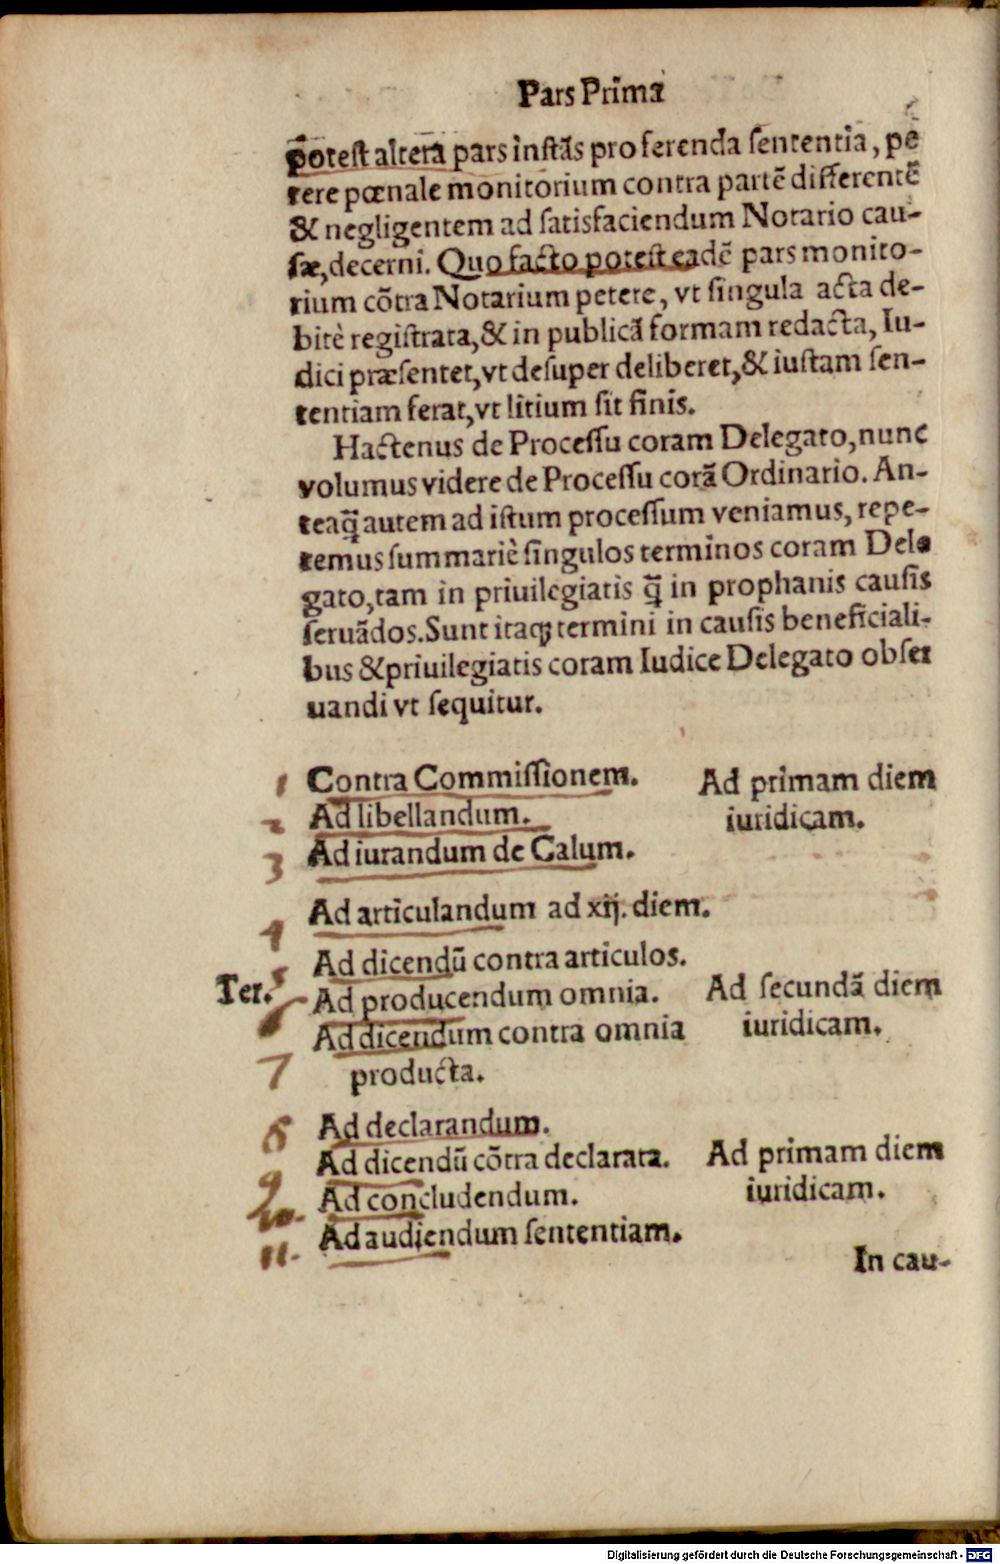 Pars Prima
põtest altera pars instãs pro ferenda sententia, pe
tere pœnale monitorium contra partẽ differentẽ
& negligentem ad satisfaciendum Notario cau-
sæ, decerni. Quo facto potest eadẽ pars monito-
rium cõtra Notarium petere, vt singula acta de-
bitè registrata, & in publicã formam redacta, Iu-
dici præsentet, vt desuper deliberet, & iustam sen-
tentiam ferat, vt litium sit finis.
Hactenus de Processu coram Delegato, nunc
volumus videre de Processu corã Ordinario. An-
teaq̃ autem ad istum processum veniamus, repe-
temus summariè singulos terminos coram Dele
gato, tam in priuilegiatis q̃ in prophanis causis
seruãdos. Sunt itaqꝫ termini in causis beneficiali-
bus & priuilegiatis coram Iudice Delegato obser
uandi vt sequitur.
1 Contra Commissionem. Ad primam diem
2 Ad libellandum. iuridicam.
3 Ad iurandum de Calum.
4 Ad articulandum ad xij. diem.
5 Ad dicendũ contra articulos.
Ter. 6 Ad producendum omnia. Ad secundã diem
7 Ad dicendum contra omnia iuridicam.
producta.
8 Ad declarandum.
9 Ad dicendũ cõtra declarata. Ad primam diem
10. Ad concludendum. iuridicam.
11. Ad audiendum sententiam.
In cau-
Digitalisierung gefördert durch die Deutsche Forschungsgemeinschaft - DFG